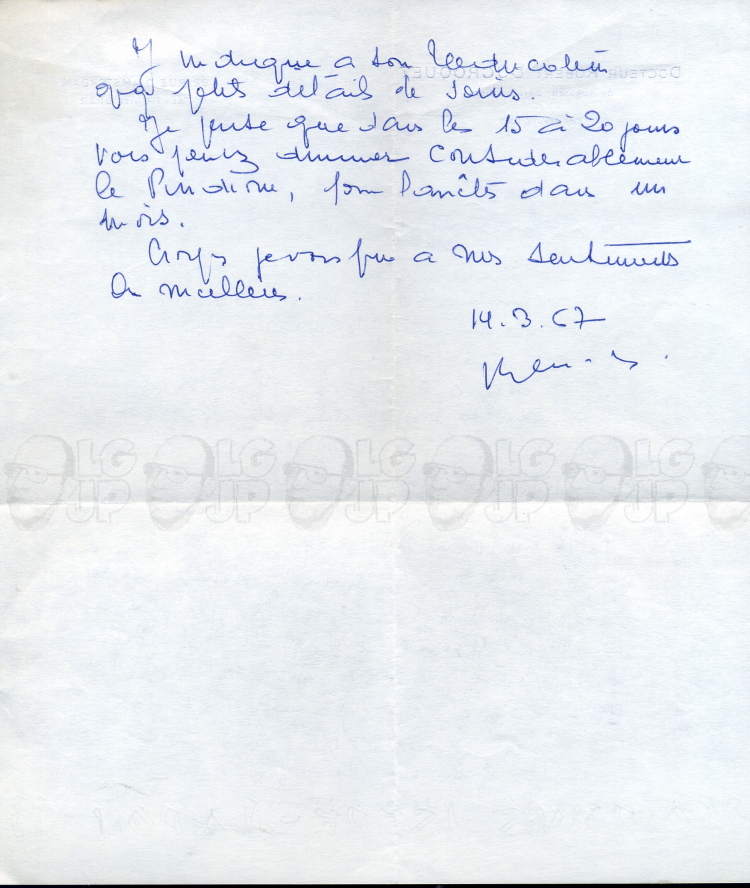 J'indique a son
qq petits détails de soins.
Je pense que dans les 15 à 20 jours
vous pourrez diminuer considerablement
le , pour l'arrêter dans un
mois.
Croyez je vous prie a mes sentiments
les meilleurs.
14.3.67
LG JP LG JP LG JP LG JP LG JP